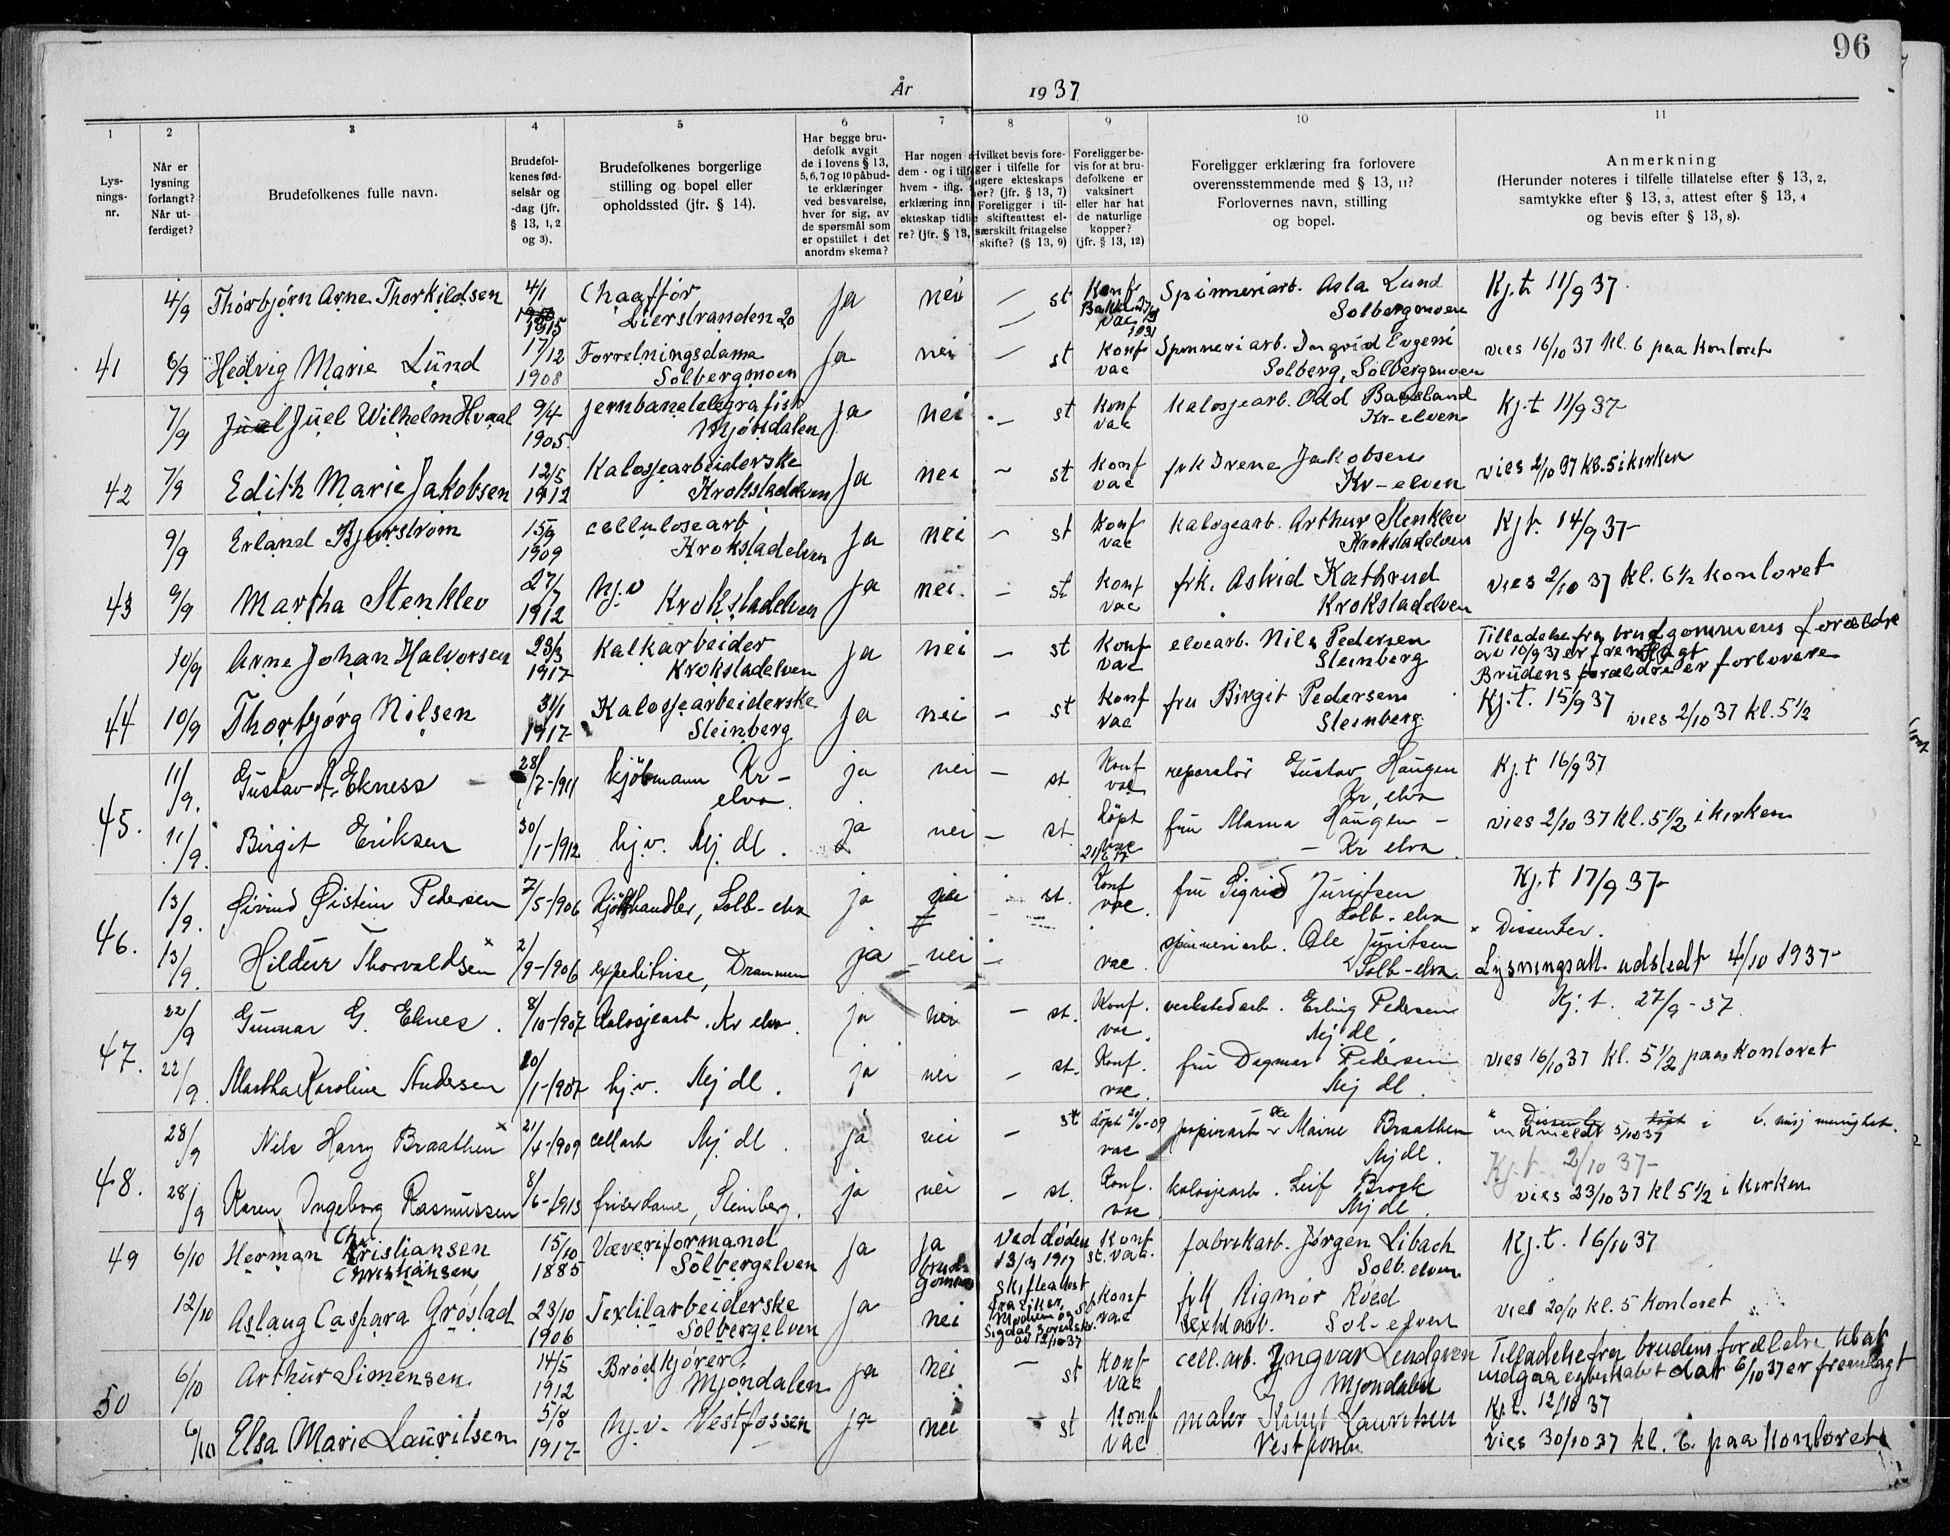 96
År 1937
1 2 3 4 5 6 7 8 9 10 11
Lys-
nings-
nr.
Når er
lysning
forlangt?
Når ut-
ferdiget?
Brudefolkenes fulle navn.
Brudefol-
kenes fød-
selsår og
-dag (jfr.
§ 13, 1, 2
og 3).
Brudefolkenes borgerlige
stilling og bopel eller
opholdssted (jfr. § 14).
Har begge bru-
defolk avgit
de i lovens § 13,
5, 6, 7 og 10 påbud-
te erklæringer
ved besvarelse,
hver for sig, av
de spørsmål som
er opstillet i det
anordn. skema?
Har nogen
dem - og i tilf
hvem - iflg.
erklæring inn
ekteskap tidli
re? (jfr. § 13,
Hvilket bevis fore-
ger i tilfelle for
ngere ekteskaps
hør? (jfr. § 13, 7)
Foreligger i til-
e skifteattest el-
særskilt fritagelse
skifte? (§ 13, 9)
Foreligger be-
vis for at bru-
defolkene er
vaksinert
eller har hat
de naturlige
kopper?
(jfr. § 13, 12)
Foreligger erklæring fra forlovere
overensstemmende med § 13, 11?
Forlovernes navn, stilling
og bopel.
Anmerkning
(Herunder noteres i tilfelle tillatelse efter § 13, 2,
samtykke efter § 13, 3, attest efter § 13, 4
og bevis efter § 13, 8).
4/9 Thorbjørn Arne Thorkildsen 4/1 1915 Chaffør Lierstranden 20 ja nei — st Konf vac 1931 Spinneriarb. Asla Lund Solbergmoen Kj.t. 11/9 37.
41 6/9 Hedvig Marie Lund 17/12 1908 Forretningsdame Solbergmoen ja nei — st Konf vac Spinneriarb. Ingrid Eugeni Solberg, Solbergmoen vies 16/10 37 kl. 6 paa kontoret
7/9 Juel Wilhelm Hvaal 9/4 1905 jernbanetelegrafist Mjøndalen ja nei — st Konf vac kalosjearb. Odd Baasland Kr-elven Kj.t 11/9 37-
42 7/9 Edith Marie Jakobsen 12/5 1912 Kalosjearbeiderske Krokstadelven ja nei — st Konf vac frk Irene Jakobsen Kr-elven vies 2/10 37 kl. 5 i kirken
9/9 Erland Bjurstrøm 15/9 1909 cellulosearb Krokstadelven ja nei — st Konf vac kalosjearb. Arthur Stenklev Krokstadelven Kj.t. 14/9 37-
43 9/9 Martha Stenklev 27/7 1912 hj.v Krokstadelven ja nei. — st Konf vac frk. Astrid Kathrud Krokstadelven vies 2/10 37 kl. 6 1/2 kontoret
10/9 Arne Johan Halvorsen 23/3 1917 Kalkarbeider Krokstadelven ja nei — st Konf vac elvearb. Nils Pedersen Steinberg Tilladelse fra brudgommens forældre av 10/9 37 er fremlagt Brudens forældre er forlovere
44 10/9 Thorbjørg Nilsen 31/1 1917- Kalosjearbeiderske Steinberg ja nei — st Konf vac fru Birgit Pedersen Steinberg Kj.t. 15/9 37 vies 2/10 37 kl. 5 1/2
45. 11/9. Gustav A. Ekness 28/7-1911 kjøbmann Kr-elva. ja nei — st. Konf vac reparatør Gustav Haugen Kr, elva Kj.t 16/9 37
11/9. Birgit Eriksen 30/1-1912 hj.v. Mj. dl. ja nei — st. døpt vac 21/6 17 fru Marna Haugen - - Kr elva. vies 2/10 37 kl. 5 1/2 i kirken
46. 13/9. Øivind Øistein Pedersen 7/5-1906 kjøtthandler, Solb-elva ja nei — st. Konf vac. fru Sigrid Juritsen Solb-elva Kj.t 17/9 37-
13/9. Hildur Thorvaldsen × 2/9-1906 expeditrise, Drammen ja nei — vac. spinneriarb. Ole Juritsen Solb-elva. × Dissenter. Lysningsatt. udstedt 4/10 1937-
47. 22/9 Gunnar G. Eknes. 8/10-1907 Kalosjearb. Kr elva. ja nei — st. Konf. vac. verkstedarb. Erling Pedersen Mj. dl. Kj.t. 27/9-37.
22/9. Martha Karoline Andersen 20/1-1907 hj.v. Mj dl. ja nei — st. Konf. vac. fru Dagmar Pedersen Mj dl. vies 16/10 37 kl. 5 1/2 paa kontoret
48. 28/9 Nils Harry Braathen × 21/4-1909 cellarb Mj. dl. ja nei — st døpt 20/6-09 vac papirarb Braathen Mj dl. × Dissenter døpt i innmeldt 5/10 37 menighet. Kj.t. 2/10 37-
28/9 Karen Ingeborg Rasmussen 8/6-1913 friserdame, Steinberg. ja nei — st. Konf. vac. kalosjearb. Leif Broch Mj dl. vies 23/10 37 kl 5 1/2 i kirken
49 6/10 Herman Kristiansen Christiansen 15/10 1885 Væveriformand Solbergelven ja ja brudgommen ved døden 13/3 1917 Konf st. vac. fabrikarb. Jørgen Libach Solb. elven Kj.t. 16/10 37
12/10 Aslaug Caspara Grøstad 23/10 1906 Textilarbeiderske Solbergelven ja nei skifteattest fra Eiker, Modum og Sigdal sorenskr. av 12/10 37 Konf vac frk Rigmor Roed textilarb. Sol-elven vies 20/11 kl. 5 Kontoret
6/10 Arthur Simensen 14/5 1912 Brødkjører Mjøndalen ja nei — st Konf vac cell. arb. Yngvar Lundgren Mjøndalen Tilladelse fra brudens forældre til at indgaa egteskabet dat 6/10 37 er fremlagt
50 6/10 Elsa Marie Lauritsen 5/8 1917- hj.v. Vestfossen ja nei — st Konf vac maler Knut Lauritsen Vestfossen Kj.t. 12/10 37 vies 30/10 37 kl. 6. paa kontoret